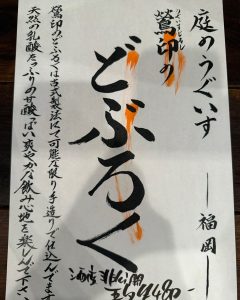 庭のうぐいす
—福岡—
うぐいすじるし
鶯印の
どぶろく
鶯印のどぶろくは古式製法にて可能な限り手造りで仕込んでます
天然の乳酸たっぷりの甘酸っぱい爽やかな飲み心地を楽しんで下さい